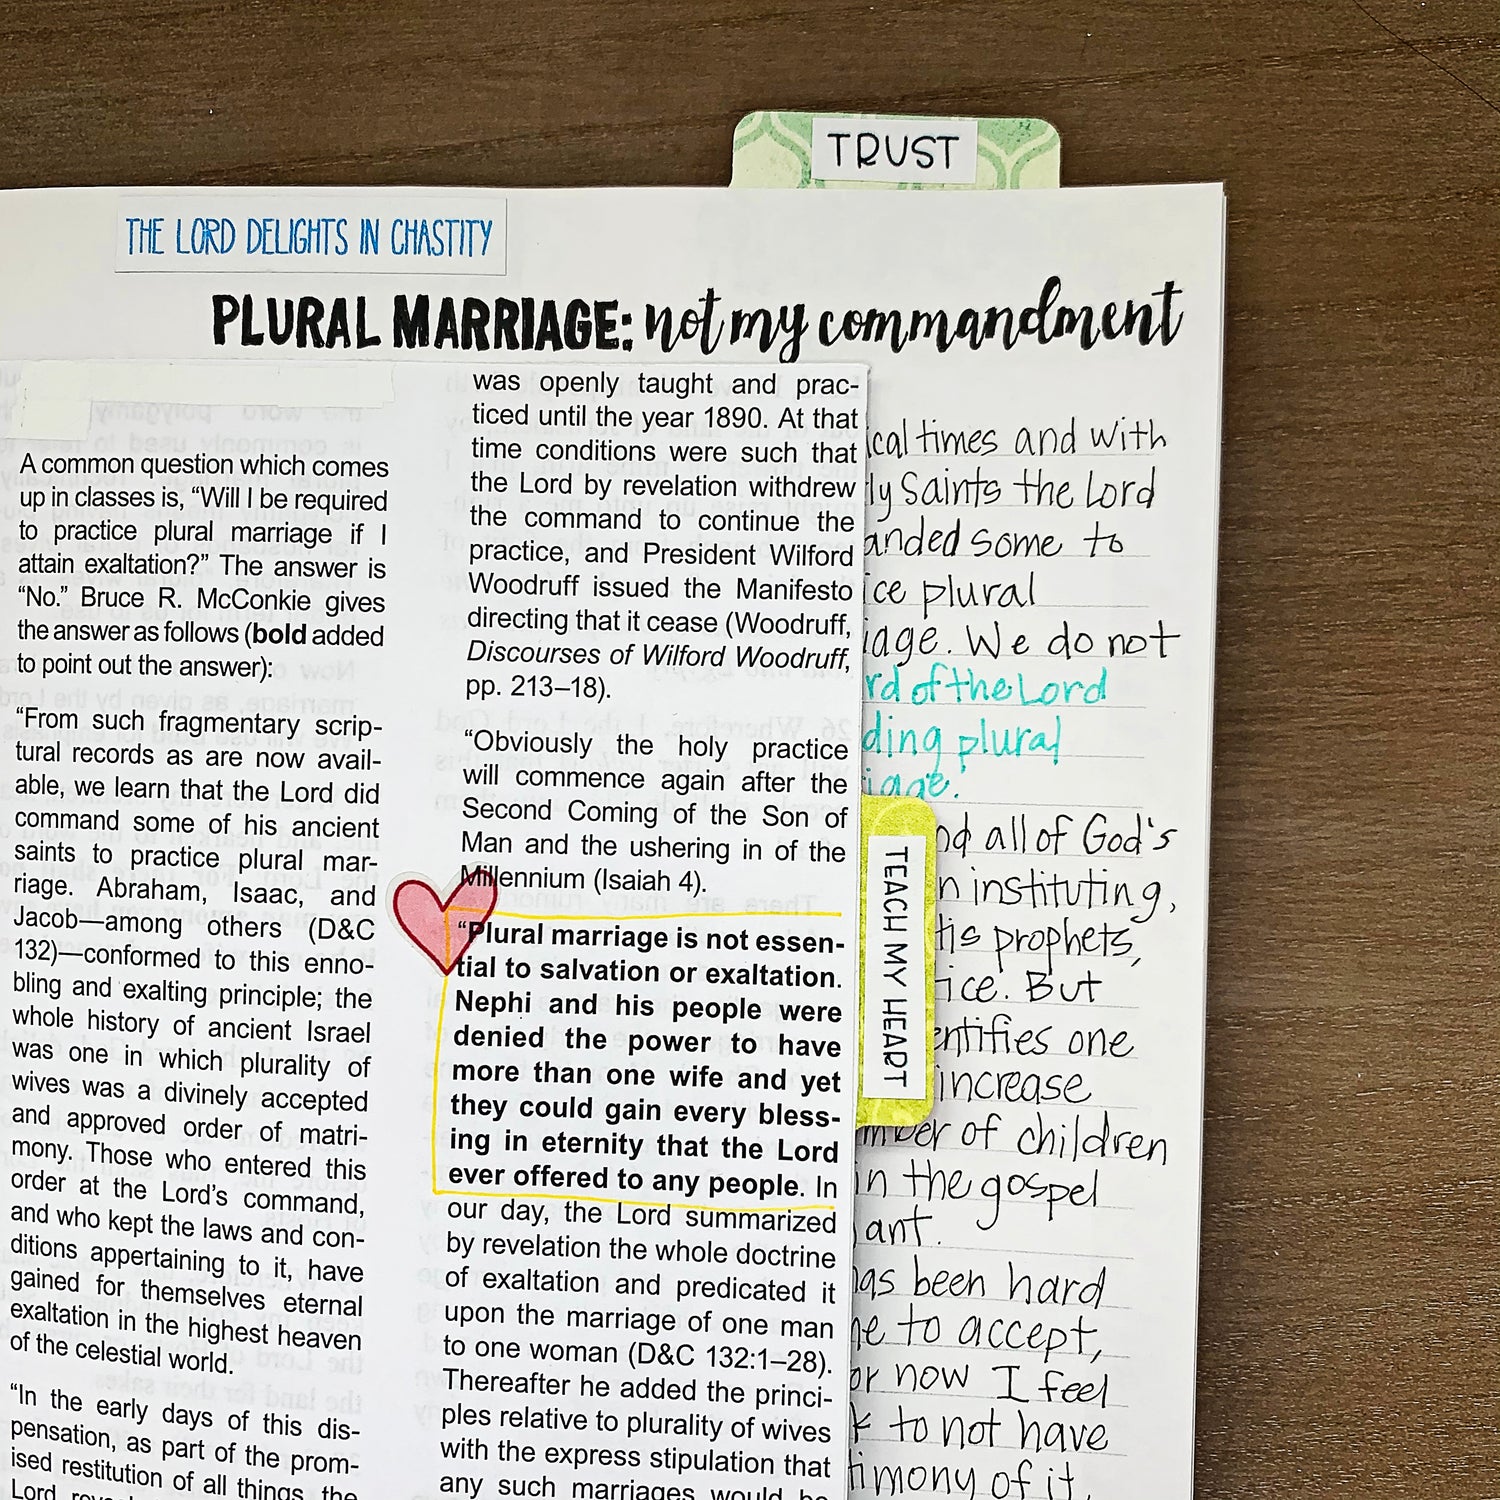 TRUST
THE LORD DELIGHTS IN CHASTITY
PLURAL MARRIAGE: not my commandment
A common question which comes
up in classes is, “Will I be required
to practice plural marriage if I
attain exaltation?” The answer is
“No.” Bruce R. McConkie gives
the answer as follows (bold added
to point out the answer):
“From such fragmentary scrip-
tural records as are now avail-
able, we learn that the Lord did
command some of his ancient
saints to practice plural mar-
riage. Abraham, Isaac, and
Jacob—among others (D&C
132)—conformed to this enno-
bling and exalting principle; the
whole history of ancient Israel
was one in which plurality of
wives was a divinely accepted
and approved order of matri-
mony. Those who entered this
order at the Lord’s command,
and who kept the laws and con-
ditions appertaining to it, have
gained for themselves eternal
exaltation in the highest heaven
of the celestial world.
“In the early days of this dis-
pensation, as part of the prom-
ised restitution of all things, the
Lord
was openly taught and prac-
ticed until the year 1890. At that
time conditions were such that
the Lord by revelation withdrew
the command to continue the
practice, and President Wilford
Woodruff issued the Manifesto
directing that it cease (Woodruff,
Discourses of Wilford Woodruff,
pp. 213–18).
“Obviously the holy practice
will commence again after the
Second Coming of the Son of
Man and the ushering in of the
Millennium (Isaiah 4).
“Plural marriage is not essen-
tial to salvation or exaltation.
Nephi and his people were
denied the power to have
more than one wife and yet
they could gain every bless-
ing in eternity that the Lord
ever offered to any people. In
our day, the Lord summarized
by revelation the whole doctrine
of exaltation and predicated it
upon the marriage of one man
to one woman (D&C 132:1–28).
Thereafter he added the princi-
ples relative to plurality of wives
with the express stipulation that
any such marriages would be
ical times and with
ly Saints the Lord
anded some to
ice plural
iage. We do not
rd of the Lord
ding plural
iage.
nd all of God's
n instituting,
His prophets,
ice. But
entifies one
increase
mber of children
in the gospel
ant.
has been hard
me to accept,
or now I feel
k to not have
timony of it.
TEACH MY HEART